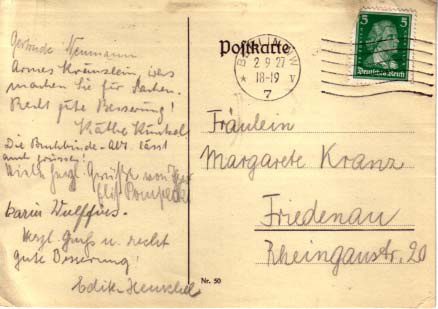 Gertrude Neumann
Armes Kränzlein, was
machen Sie für Sachen.
Recht gute Besserung!
Käthe Kunkel
Die Buchbinde-Abt. lässt
auch grüssen!
Viele herzl. Grüße von
Karin Wulffius.
Herzl. Gruß u. recht
gute Besserung!
Edith Henschel
Postkarte
BERLIN
2 9 27
* 18-19 V
7
5 5
Deutsches Reich
Fräulein
Margarete Kranz
Friedenau
Rheingaustr. 20
Nr. 50